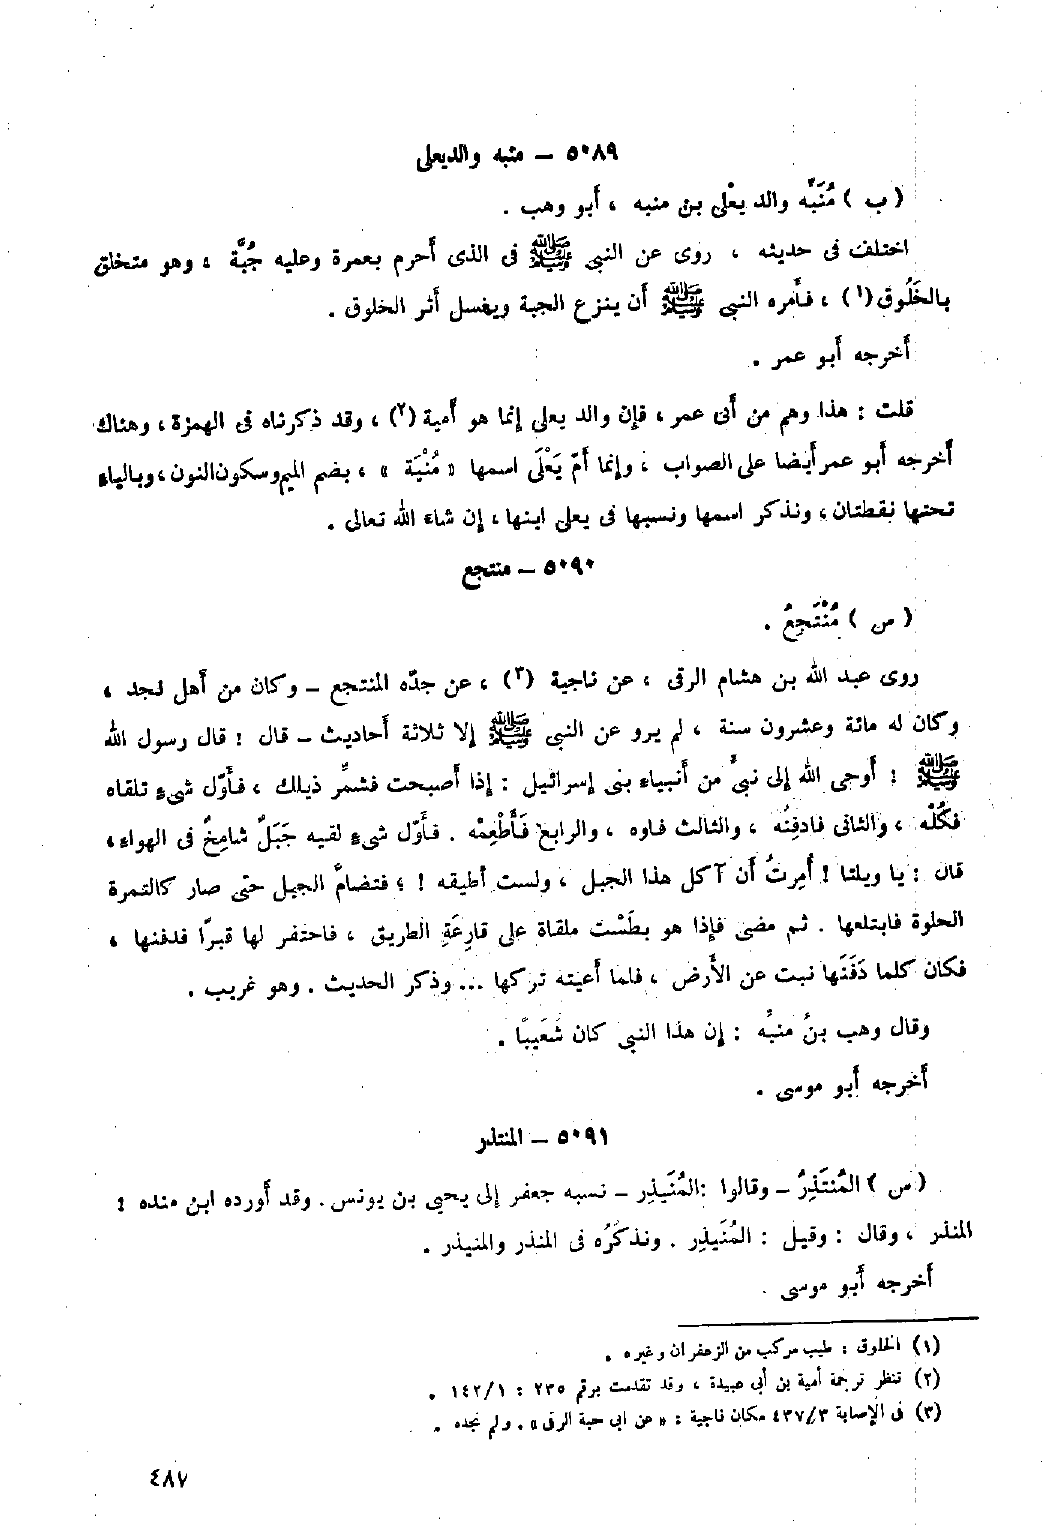 ٥٠٨٩ – منبه والد يعلى
( ب ) مُنَبِّه والد يعْلى بن منبه ، أبو وهب .
اختلف فى حديثه ، روى عن النبى ﷺ فى الذى أحرم بعمرة وعليه جُبَّة ، وهو متخلق
بالخَلُوق(١) ، فأمره النبى ﷺ أن ينزع الجبة ويغسل أثر الخلوق .
أخرجه أبو عمر .
قلت : هذا وهم من أبى عمر ، فإن والد يعلى إنما هو أمية (٢) ، وقد ذكرناه فى الهمزة ، وهناك
أخرجه أبو عمر أيضا على الصواب ، وإنما أمّ يَعْلَى اسمها « مُنْيَة » ، بضم الميم وسكون النون ، وبالياء
تحتها نقطتان ، ونذكر اسمها ونسبها فى يعلى ابنها ، إن شاء الله تعالى .
٥٠٩٠ – منتجع
( س ) مُنْتَجِعُ .
روى عبد الله بن هشام الرقى ، عن ناجية (٣) ، عن جدّه المنتجع – وكان من أهل نجد ،
وكان له مائة وعشرون سنة ، لم يرو عن النبى ﷺ إلا ثلاثة أحاديث – قال : قال رسول الله
ﷺ : أوحى الله إلى نبىٍّ من أنبياء بنى إسرائيل : إذا أصبحت فشمِّر ذيلك ، فأوّل شىء تلقاه
فكُلْه ، والثانى فادفِنْه ، والثالث فاوه ، والرابع فَأَطْعِمْه . فأوّل شىء لقيه جَبَلٌ شامِخٌ فى الهواء ،
قال : يا ويلتا ! أُمِرتُ أن آكل هذا الجبل ، ولست أطيقه ! ؛ فتضامَّ الجبل حتى صار كالتمرة
الحلوة فابتلعها . ثم مضى فإذا هو بطَسْت ملقاة على قارِعَةِ الطريق ، فاحتفر لها قبرًا فدفنها ،
فكان كلما دَفَنَها نبت عن الأرض ، فلما أعيته تركها ... وذكر الحديث . وهو غريب .
وقال وهب بنُ منبِّه : إن هذا النبى كان شُعَيبًا .
أخرجه أبو موسى .
٥٠٩١ – المنتذر
( س ) المُنتَذِرُ – وقالوا : المُنَيذِر – نسبه جعفر إلى يحيى بن يونس . وقد أورده ابن منده :
المنذر ، وقال : وقيل : المُنَيذِر . ونذكرُه فى المنذر والمنيذر .
أخرجه أبو موسى .
(١) الخلوق : طيب مركب من الزعفران وغيره .
(٢) تنظر ترجمة أمية بن أبى عبيدة ، وقد تقدمت برقم ٢٣٥ : ١/١٤٢ .
(٣) فى الإصابة ٤٣٧/٣ مكان ناجية : « عن ابى حبة الرقى » . ولم نجده .
٤٨٧